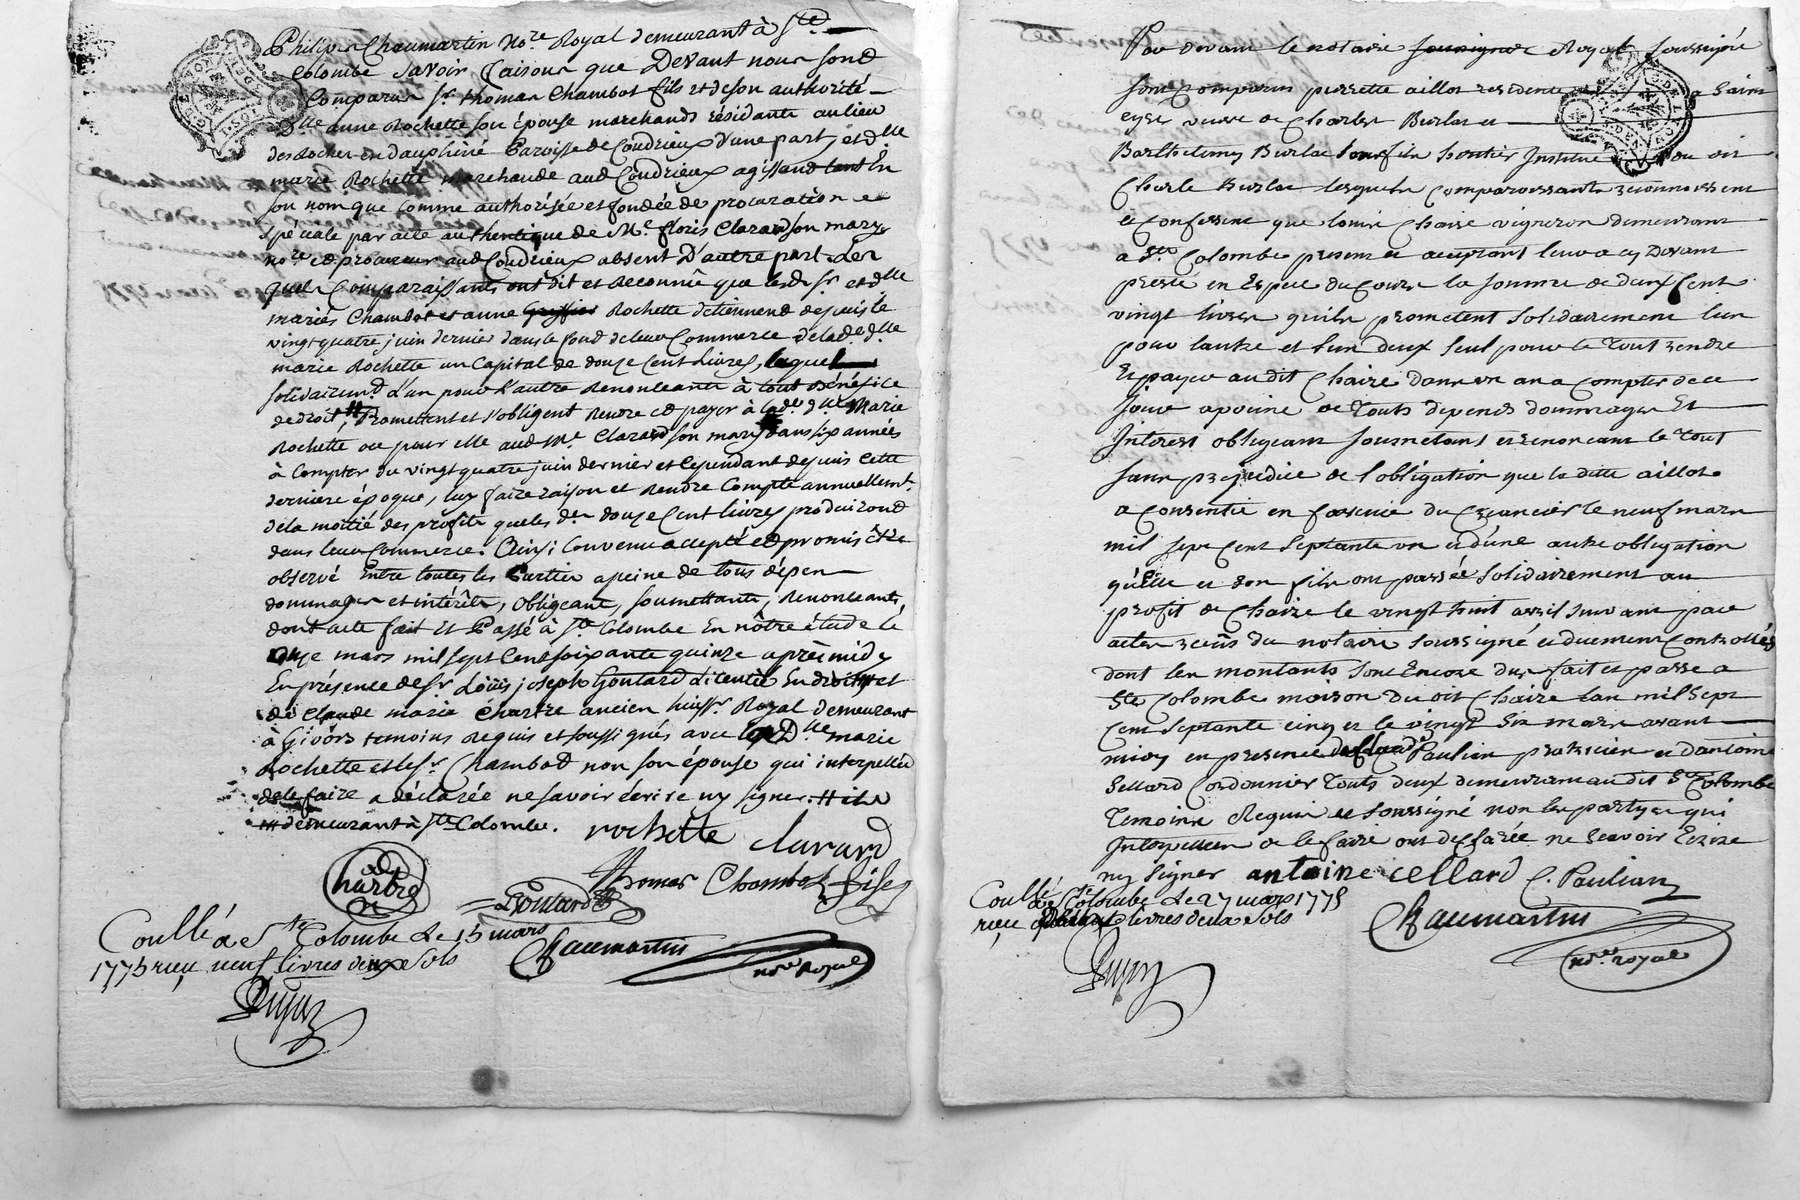 Philipe Chaumartin No.re Royal demeurant à S.te
Colombe Savoir faisons que Devant nous sont
Comparus S.r thomas Chambot fils et de son authorité
D.lle anne Rochette son épouse marchands résidants au lieu
des Roches en dauphiné Paroisse de Condrieux d'une part, et d.lle
marie Rochette marchande aud Condrieux agissand tant En
son nom que comme authorisée et fondée de procuration
spéciale par acte authentique de M.e floris Clarard son mary
no.re et procureur aud Condrieux absent D'autre part. Les
quels Comparaissants ont dit et Reconnû que lesd. S.r et d.lle
mariés Chambot et anne Rochette detiennent depuis le
vingt quatre juin dernier dans le fond de leur Commerce de lad.e d.lle
marie Rochette un Capital de douze Cent Livres, lequel
solidairem.t L'un pour L'autre Renonceants à tout Bénéfice
de droit, Promettent et s'obligent Rendre et payer à lad.e d.lle Marie
Rochette ou pour elle aud M.e Clarard son mary dans six années
à Compter du vingt quatre juin dernier et Cependant depuis Cette
derniere époque, luy faire raison et Rendre Compte annuellem.t
de la moitié des profits que les d.es douze Cent livres produiront
dans leur Commerce. Ainsi Convenu accepté et promis être
observé Entre toutes les Parties apeine de tous dépens
dommages et intérêts, obligeants, soumettants, Renonceants,
dont acte fait Et Passé à S.te Colombe En nôtre étude le
onze mars mil sept Cent soixante quinze après midy
En présence de S.r Loüis joseph Goutard licentié En droits et
de Claude marie Chartre ancien huiss.r Royal demeurant
à Givors temoins Requis et soussignés avec la D.lle marie
Rochette et le S.r Chambot non son épouse qui interpellée
de le faire a déclarée ne savoir écrire ny signer.
demeurant à S.te Colombe. rochette clarard
Chartre Goutard Thomas Chambot fils
Conllé a S.te Colombe Le 15 mars
1775 reçu neuf livres deux sols
Chaumartin
no.re Royal
Par devant le notaire Royal soussigné
sont Comparus pierrette aillot residente a saint
cyr veuve de Charles Burlat et
Barthelemy Burlat son fils heritier Institué du dit
Charle Burlat lesquels Comparoissants reconnoissent
et Confessent que louis Chaize vigneron demeurant
a S.te Colombe present et acceptant leur a cy devant
presté en Espece du Cours la somme de deux Cent
vingt livres quils promettent solidairement lun
pour lautre et lun deux seul pour le tout rendre
Et payer au dit Chaize dans un an a Compter de ce
jour apeine de touts depends dommages Et
Interest obligeant soumettant et renonceant le tout
sans prejudice de l'obligation que la ditte aillot
a Consentie en faveur du creancier le neuf mars
mil sept Cent septante un et d'une autre obligation
qu'elle et son fils ont passée solidairement au
profit de Chaize le vingt huit avril suivant par
actes recus du notaire soussigné et duement Controllés
dont les montants sont Encore dus fait et passé a
Ste Colombe maison du dit Chaize lan mil sept
Cent septante cinq et le vingt six mars avant
midy en presence de Claude Paulian praticien et dantoine
Sellard Cordonnier touts deux demeurant au dit S.te Colombe
Temoins Requis et soussigné non les partyes qui
Interpellées de le faire ont declarée ne scavoir Ecrire
ny signer antoine cellard C. Paulian
Conllé a S.te Colombe Le 27 mars 1775
reçu livres deux sols
Chaumartin
no.re royal